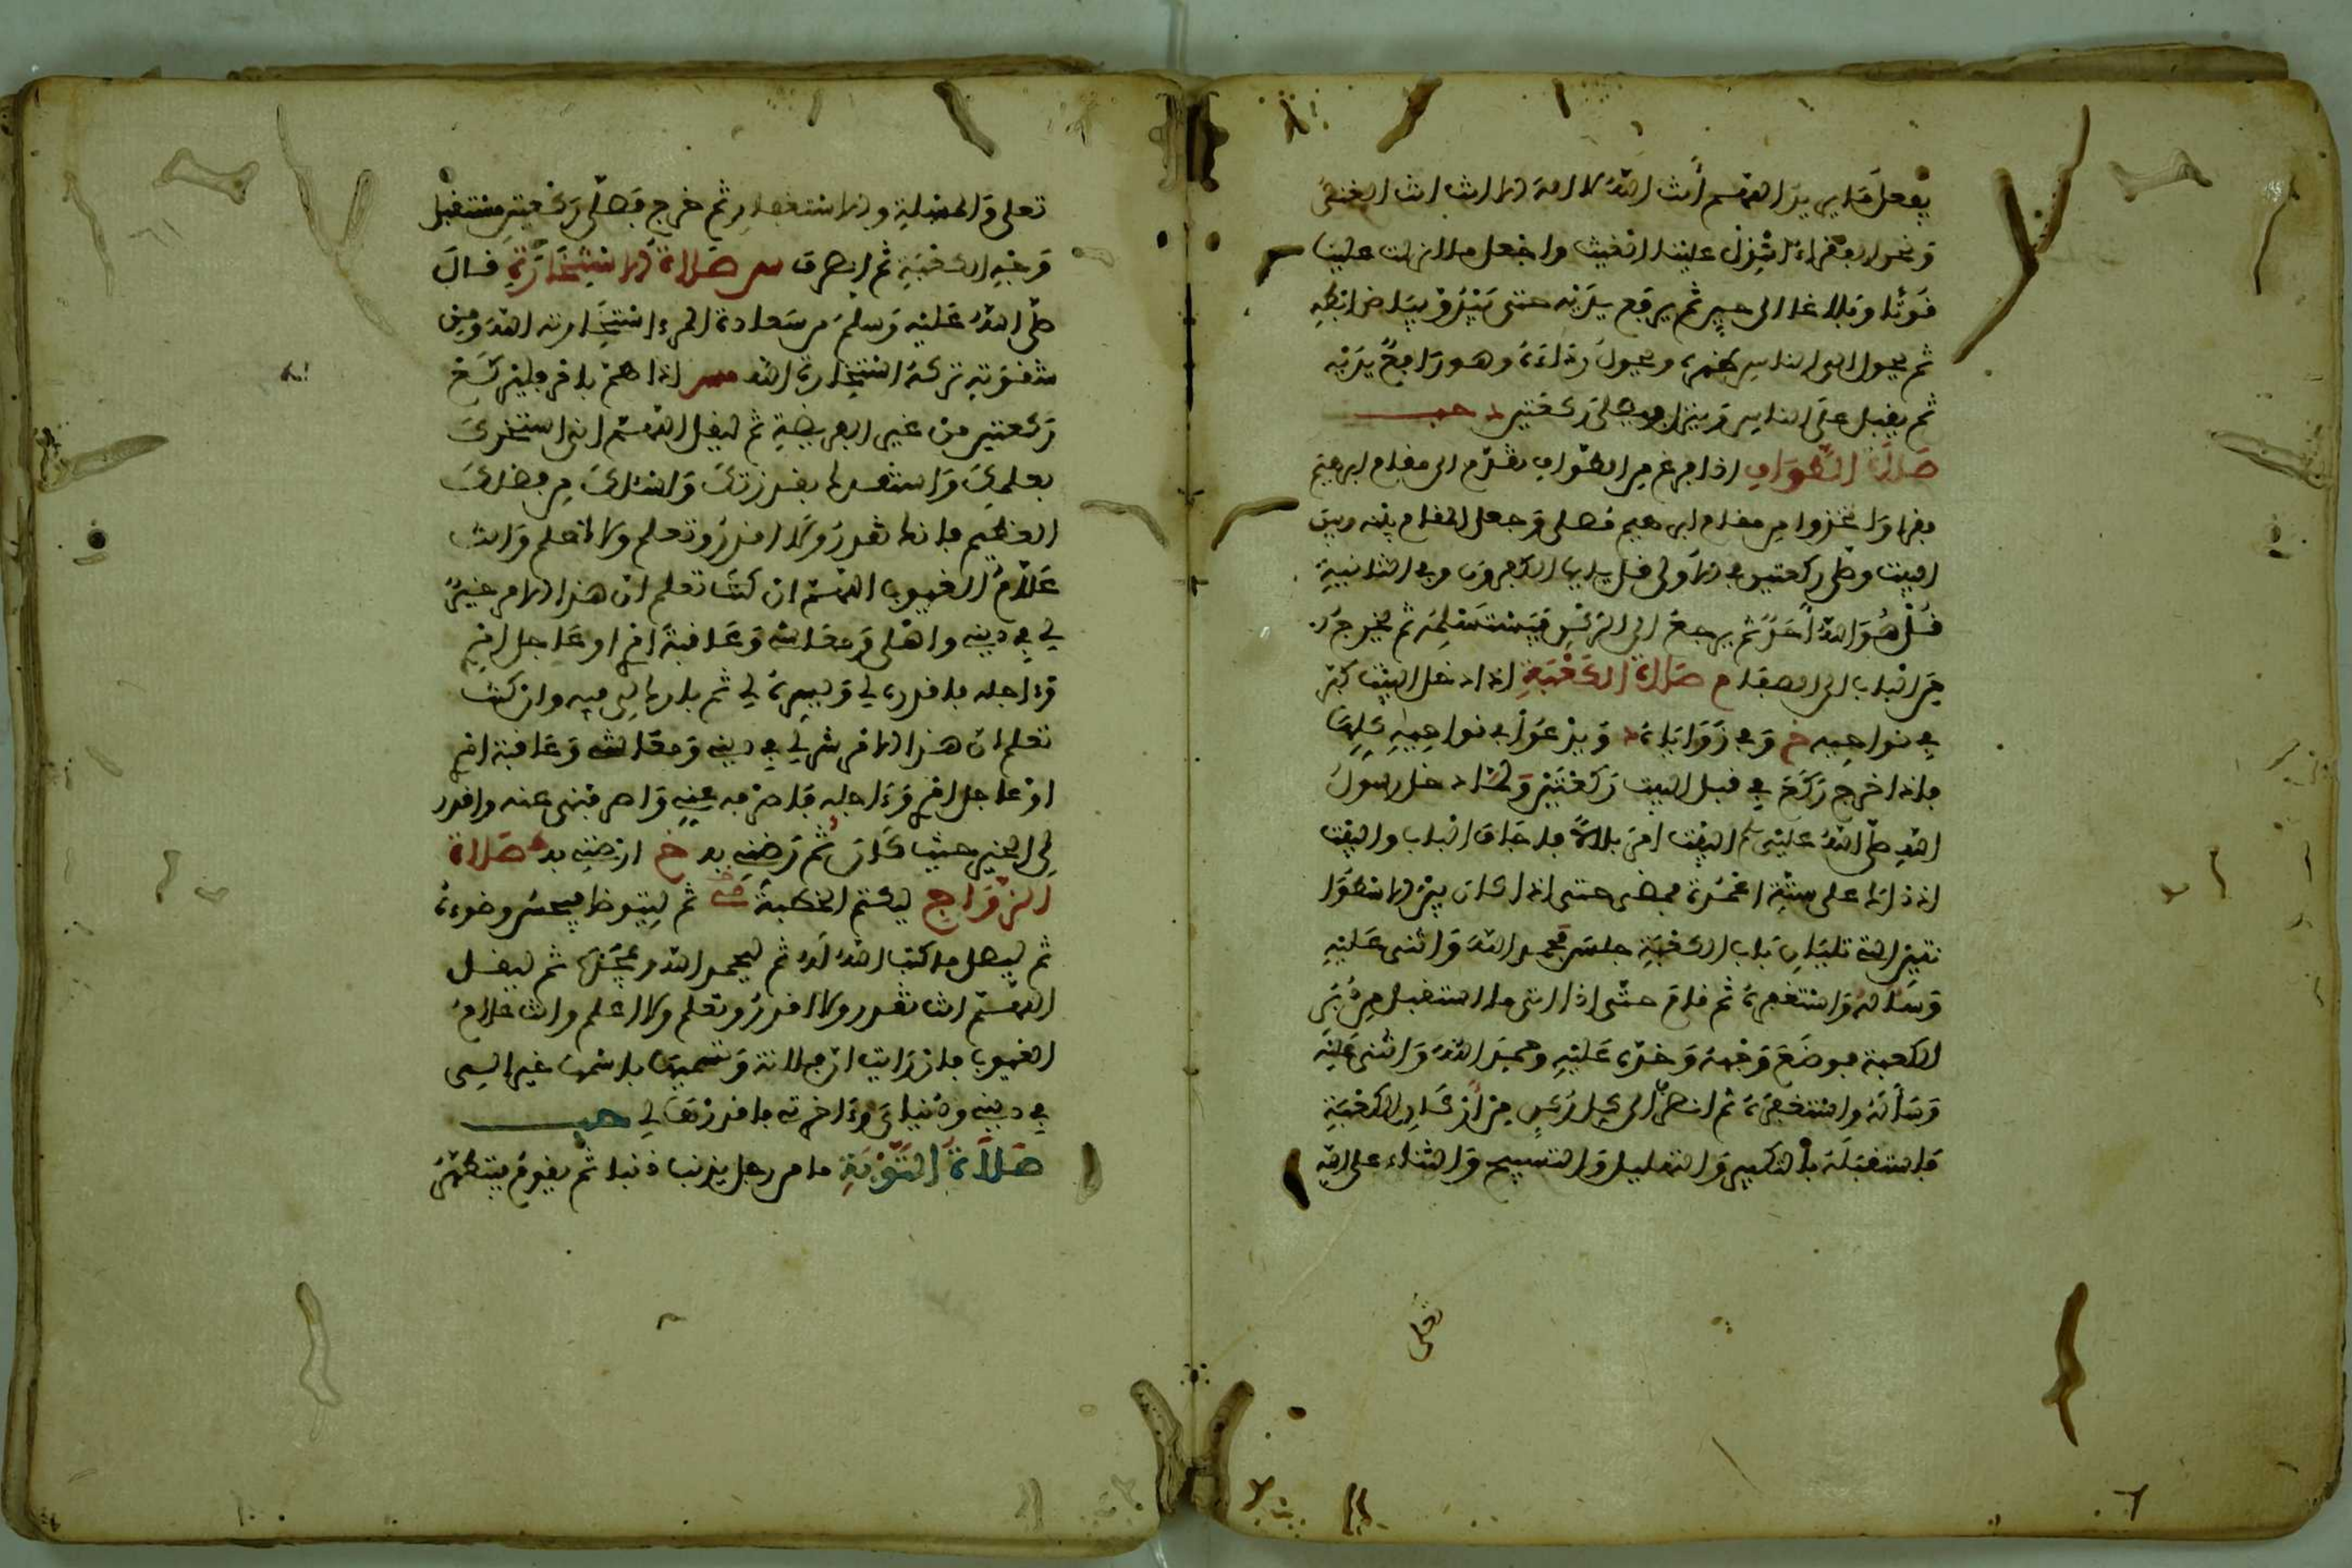 يفعل ما يريد اللهم أنت الله لا اله الا انت انت الغنى
ونحن الفقراء انزل علينا الغيث واجعل ما انزلت علينا
قوتا وبلاغا الى حين ثم يرفع يديه حتى يبدو بياض ابطه
ثم يحول الى الناس ظهره ويحول رداءه وهو رافع يديه
ثم يقبل على الناس وينزل ويصلى ركعتين د حب
صلاة الطواف اذا فرغ من الطواف تقدم الى مقام ابرهيم
فقرا واتخذوا من مقام ابرهيم مصلى وجعل المقام بينه وبين
البيت وصلى ركعتين في الاولى قل يايها الكفرون وفي الثانية
قل هو الله احد ثم يرجع الى الركن فيستلمه ثم يخرج
من الباب الى الصفا م صلاة الكعبة اذا دخل البيت كبر
في نواحيه خ وفي زواياه د ويدعوا في نواحيه كلها
فاذا خرج ركع في قبل البيت ركعتين ولما دخل رسول
الله صلى الله عليه وسلم البيت امر بلالا فاجاف الباب والبيت
اذ ذاك على ستة اعمدة فمضى حتى اذا كان بين الاسطوا
نتين التى تليان باب الكعبة جلس فحمد الله واثنى عليه
وسأله واستغفره ثم قام حتى اذا اتى ما استقبل من دبر
الكعبة فوضع وجهه وخده عليه وحمد الله واثنى عليه
وسأله واستغفره ثم انصرف الى كل ركن من اركان الكعبة
فاستقبله بالتكبير والتهليل والتسبيح والثناء على الله
تعلى
تعلى والمسلة والاستغفار ثم خرج فصلى ركعتين مستقبل
وجه الكعبة ثم انصرف س صلاة الاستخارة قال
صلى الله عليه وسلم من سعادة المرء استخارته الله ومن
شقوته تركه استخارة الله مس اذا هم بامر فليركع
ركعتين من غير الفريضة ثم ليقل اللهم انى استخيرك
بعلمك واستقدرك بقدرتك واسئلك من فضلك
العظيم فانك تقدر ولا اقدر وتعلم ولا اعلم وانت
علام الغيوب اللهم ان كنت تعلم ان هذا الامر خير
لي في دينى واهلى ومعاشى وعاقبة امرى او عاجل امرى
وءاجله فاقدره لي ويسره لي ثم بارك لي فيه وان كنت
تعلم ان هذا الامر شر لي في دينى ومعاشى وعاقبة امرى
او عاجل امرى وءاجله فاصرفه عنى واصرفنى عنه واقدر
لي الخير حيث كان ثم رضنى به خ ارضنى به صلاة
الزواج ليكتم الخطبة ثم ليتوضا فيحسن وضوءه
ثم ليصل ما كتب الله له ثم ليحمد الله ويمجده ثم ليقل
اللهم انك تقدر ولا اقدر وتعلم ولا اعلم وانت علام
الغيوب فان رايت ان فلانة وتسميها باسمها خير الي
في دينى ودنياي وءاخرتى فاقدرها لي حب
صلاة التوبة ما من رجل يذنب ذنبا ثم يقوم فيتطهر